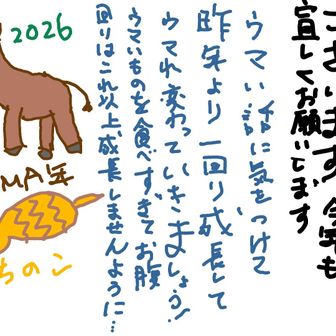 ございます。今年も
宜しくお願いします
ウマい話に気をつけて
昨年より一回り成長して
ウマれ変わっていきましょう!
ウマいものを食べすぎてお腹
回りはこれ以上成長しませんように…
2026
MA年
ちのこ